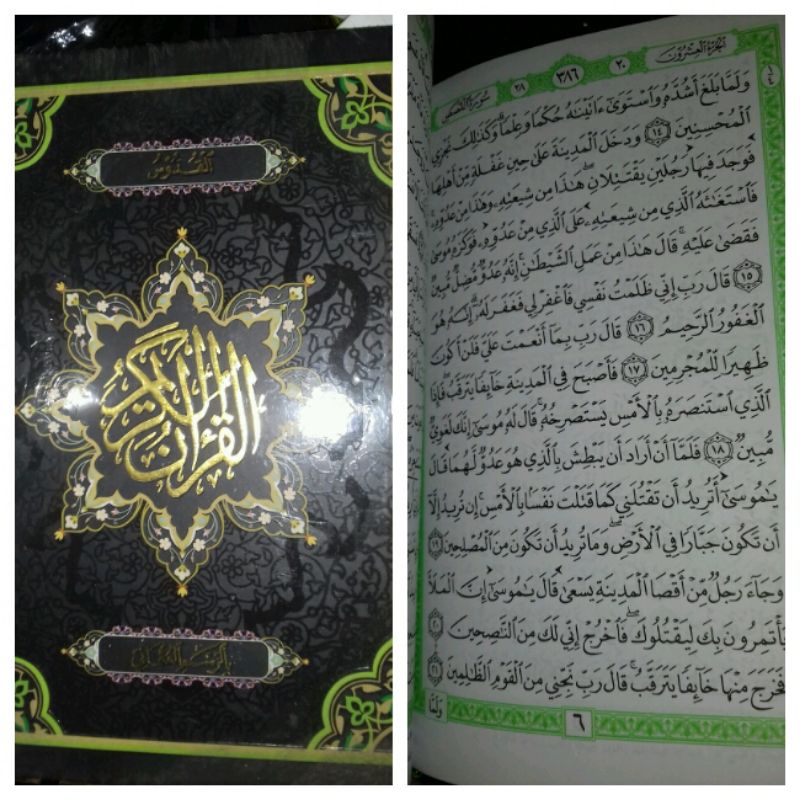 القدوس
القرآن الكريم
بالرسم العثماني
الجزء العشرون
٢٠
٣٨٦
٢٨
سورة القصص
وَلَمَّا بَلَغَ أَشُدَّهُ وَٱسْتَوَىٰٓ ءَاتَيْنَٰهُ حُكْمًا وَعِلْمًا ۚ وَكَذَٰلِكَ نَجْزِي
ٱلْمُحْسِنِينَ ١٤ وَدَخَلَ ٱلْمَدِينَةَ عَلَىٰ حِينِ غَفْلَةٍ مِّنْ أَهْلِهَا
فَوَجَدَ فِيهَا رَجُلَيْنِ يَقْتَتِلَانِ هَٰذَا مِن شِيعَتِهِۦ وَهَٰذَا مِنْ عَدُوِّهِۦ ۖ
فَٱسْتَغَٰثَهُ ٱلَّذِي مِن شِيعَتِهِۦ عَلَى ٱلَّذِي مِنْ عَدُوِّهِۦ فَوَكَزَهُۥ مُوسَىٰ
فَقَضَىٰ عَلَيْهِ ۖ قَالَ هَٰذَا مِنْ عَمَلِ ٱلشَّيْطَٰنِ ۖ إِنَّهُۥ عَدُوٌّ مُّضِلٌّ مُّبِينٌ
١٥ قَالَ رَبِّ إِنِّي ظَلَمْتُ نَفْسِي فَٱغْفِرْ لِي فَغَفَرَ لَهُۥٓ ۚ إِنَّهُۥ هُوَ
ٱلْغَفُورُ ٱلرَّحِيمُ ١٦ قَالَ رَبِّ بِمَآ أَنْعَمْتَ عَلَيَّ فَلَنْ أَكُونَ
ظَهِيرًا لِّلْمُجْرِمِينَ ١٧ فَأَصْبَحَ فِي ٱلْمَدِينَةِ خَآئِفًا يَتَرَقَّبُ فَإِذَا
ٱلَّذِي ٱسْتَنصَرَهُۥ بِٱلْأَمْسِ يَسْتَصْرِخُهُۥ ۚ قَالَ لَهُۥ مُوسَىٰٓ إِنَّكَ لَغَوِيٌّ
مُّبِينٌ ١٨ فَلَمَّآ أَنْ أَرَادَ أَن يَبْطِشَ بِٱلَّذِي هُوَ عَدُوٌّ لَّهُمَا قَالَ
يَٰمُوسَىٰٓ أَتُرِيدُ أَن تَقْتُلَنِي كَمَا قَتَلْتَ نَفْسًۢا بِٱلْأَمْسِ ۖ إِن تُرِيدُ إِلَّآ
أَن تَكُونَ جَبَّارًا فِي ٱلْأَرْضِ وَمَا تُرِيدُ أَن تَكُونَ مِنَ ٱلْمُصْلِحِينَ ١٩
وَجَآءَ رَجُلٌ مِّنْ أَقْصَا ٱلْمَدِينَةِ يَسْعَىٰ قَالَ يَٰمُوسَىٰٓ إِنَّ ٱلْمَلَأَ
يَأْتَمِرُونَ بِكَ لِيَقْتُلُوكَ فَٱخْرُجْ إِنِّي لَكَ مِنَ ٱلنَّٰصِحِينَ ٢٠
فَخَرَجَ مِنْهَا خَآئِفًا يَتَرَقَّبُ ۖ قَالَ رَبِّ نَجِّنِي مِنَ ٱلْقَوْمِ ٱلظَّٰلِمِينَ ٢١
وَلَمَّا
٦